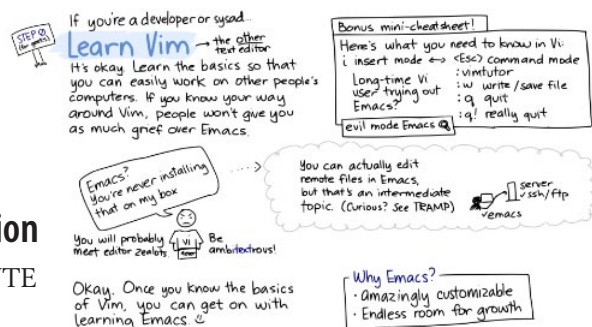 STEP 0
(for geeks)
If you're a developer or sysad...
Learn Vim → the other
text editor
It's okay. Learn the basics so that
you can easily work on other people's
computers. If you know your way
around Vim, people won't give you
as much grief over Emacs.
Bonus mini-cheatsheet!
Here's what you need to know in Vi:
i insert mode ↔ <Esc> command mode
:vimtutor
:w write/save file
:q quit
:q! really quit
Long-time Vi
user trying out
Emacs?
evil mode Emacs
Emacs?
You're never installing
that on my box
You will probably
meet editor zealots.
VI
Be
ambitextrous!
You can actually edit
remote files in Emacs,
but that's an intermediate
topic. (Curious? See TRAMP)
server
✓ssh/ftp
✓emacs
ion
YTE
Okay. Once you know the basics
of Vim, you can get on with
learning Emacs.
Why Emacs?
· amazingly customizable
· Endless room for growth